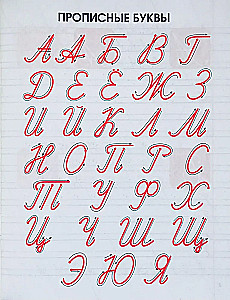 ПРОПИСНЫЕ БУКВЫ
А А Б В Г
Д Е Ё Ж З
И Й К Л М
Н О П Р С
Т У Ф Х
Ц Ч Ш Щ
Э Ю Я